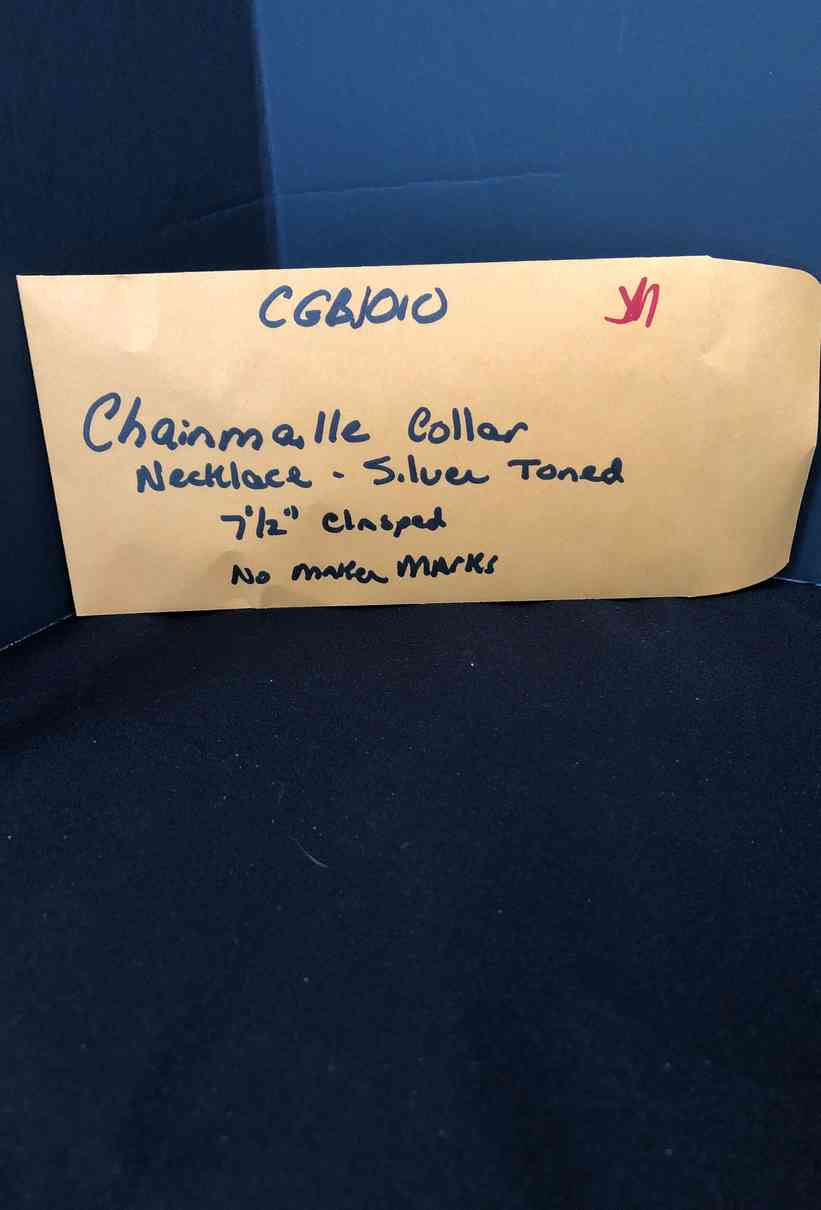 CGB1010
Chainmaille Collar
Necklace - Silver Toned
7 1/2" Clasped
No maker MArks